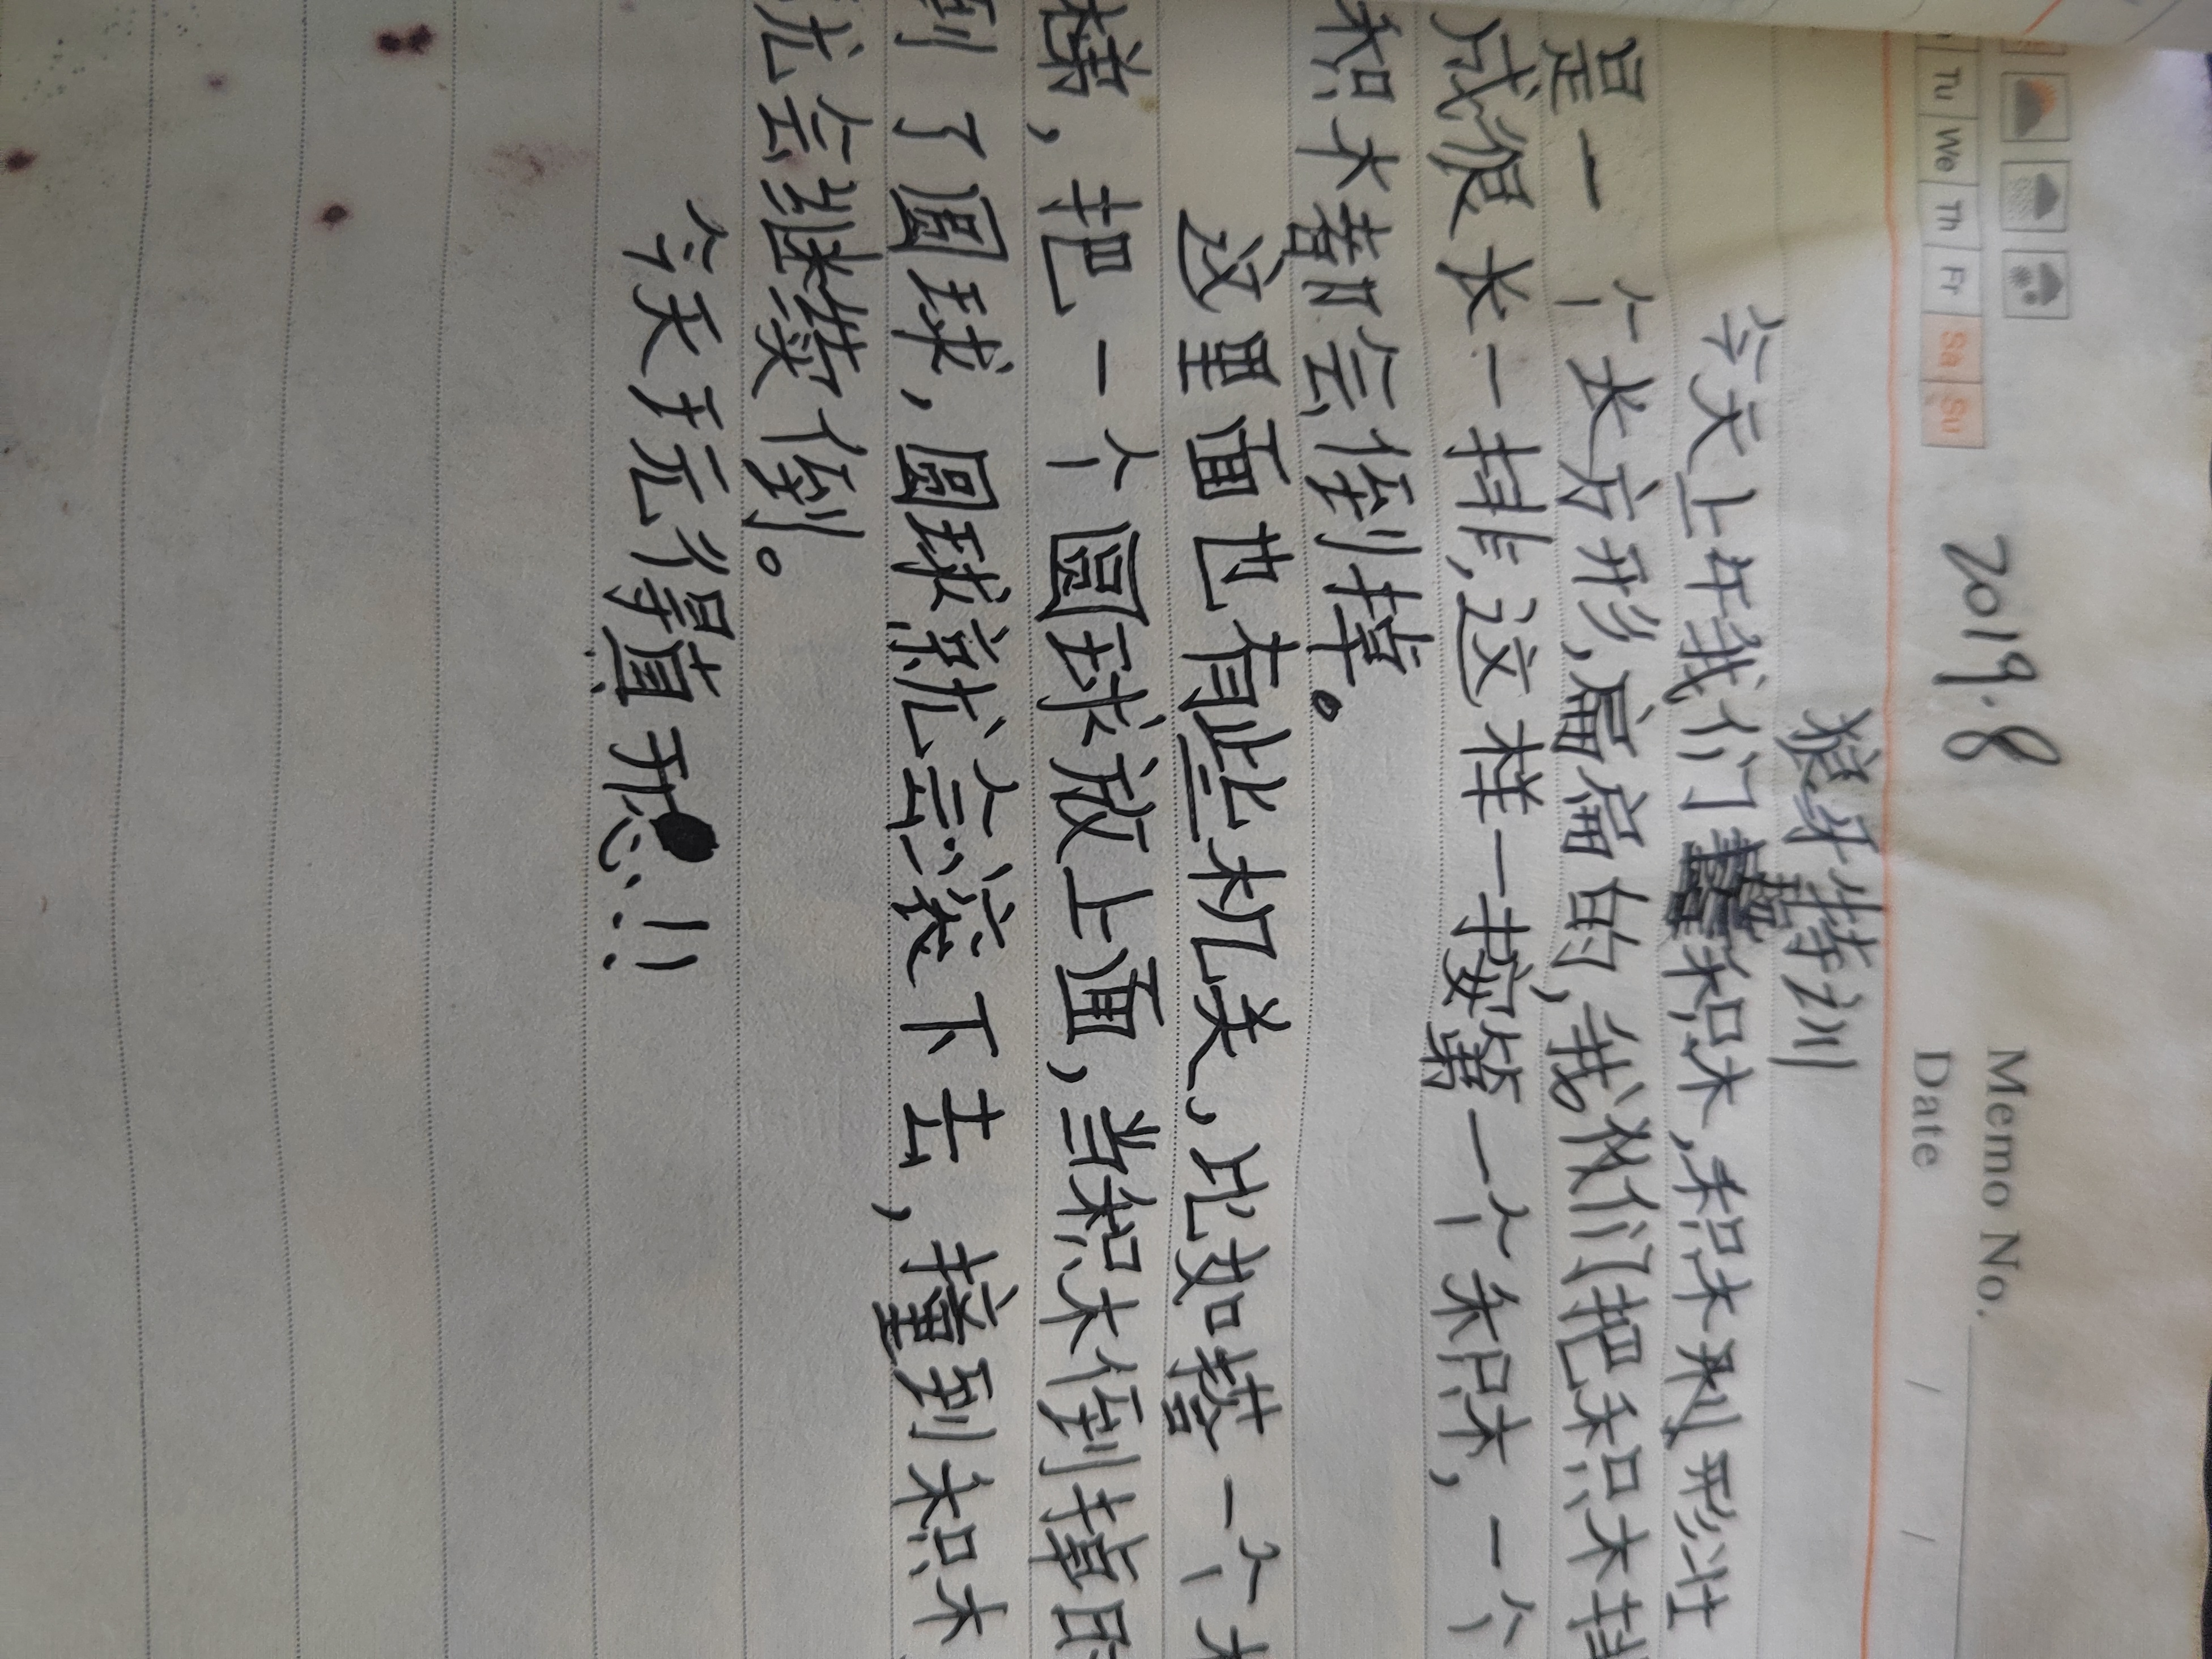 Memo No.
Tu We Th Fr Sa Su 2019.8 Date / /
狼牙特训
今天上午我们积木,积木形壮
是一个长方形,扁扁的,我我们把积木排
成很长一排,这样一按第一个积木,一个
积木都会倒掉。
这里面也有些机关,比如搭一个木
梯,把一个圆球放上面,当积木倒掉时
到了圆球,圆球就会滚下去,撞到积木
就会继续倒。
今天玩得真开心!!